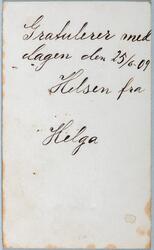 Gratulerer med
dagen den 25/6-09
Helsen fra
Helga